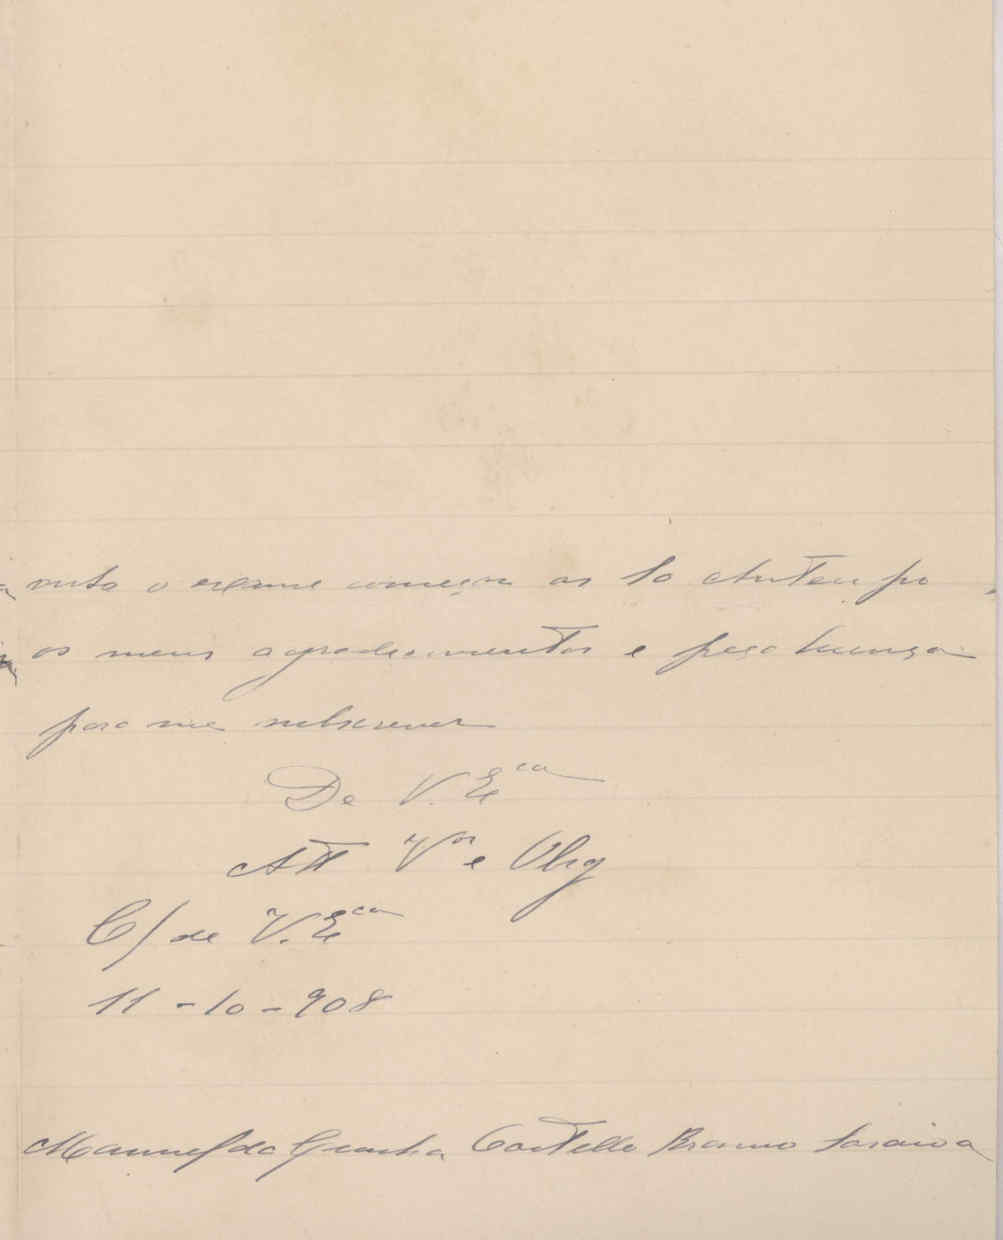 visto o exame começar as 10 Antecipo
os meus agradecimentos e peço licença
para me subscrever
De V. Eᶜⁱᵃ
Attᵒ Vᵒʳ e Obrg
C/ de V. Eᶜⁱᵃ
11-10-908
Manuel da Cunha Castello Branco Saraiva